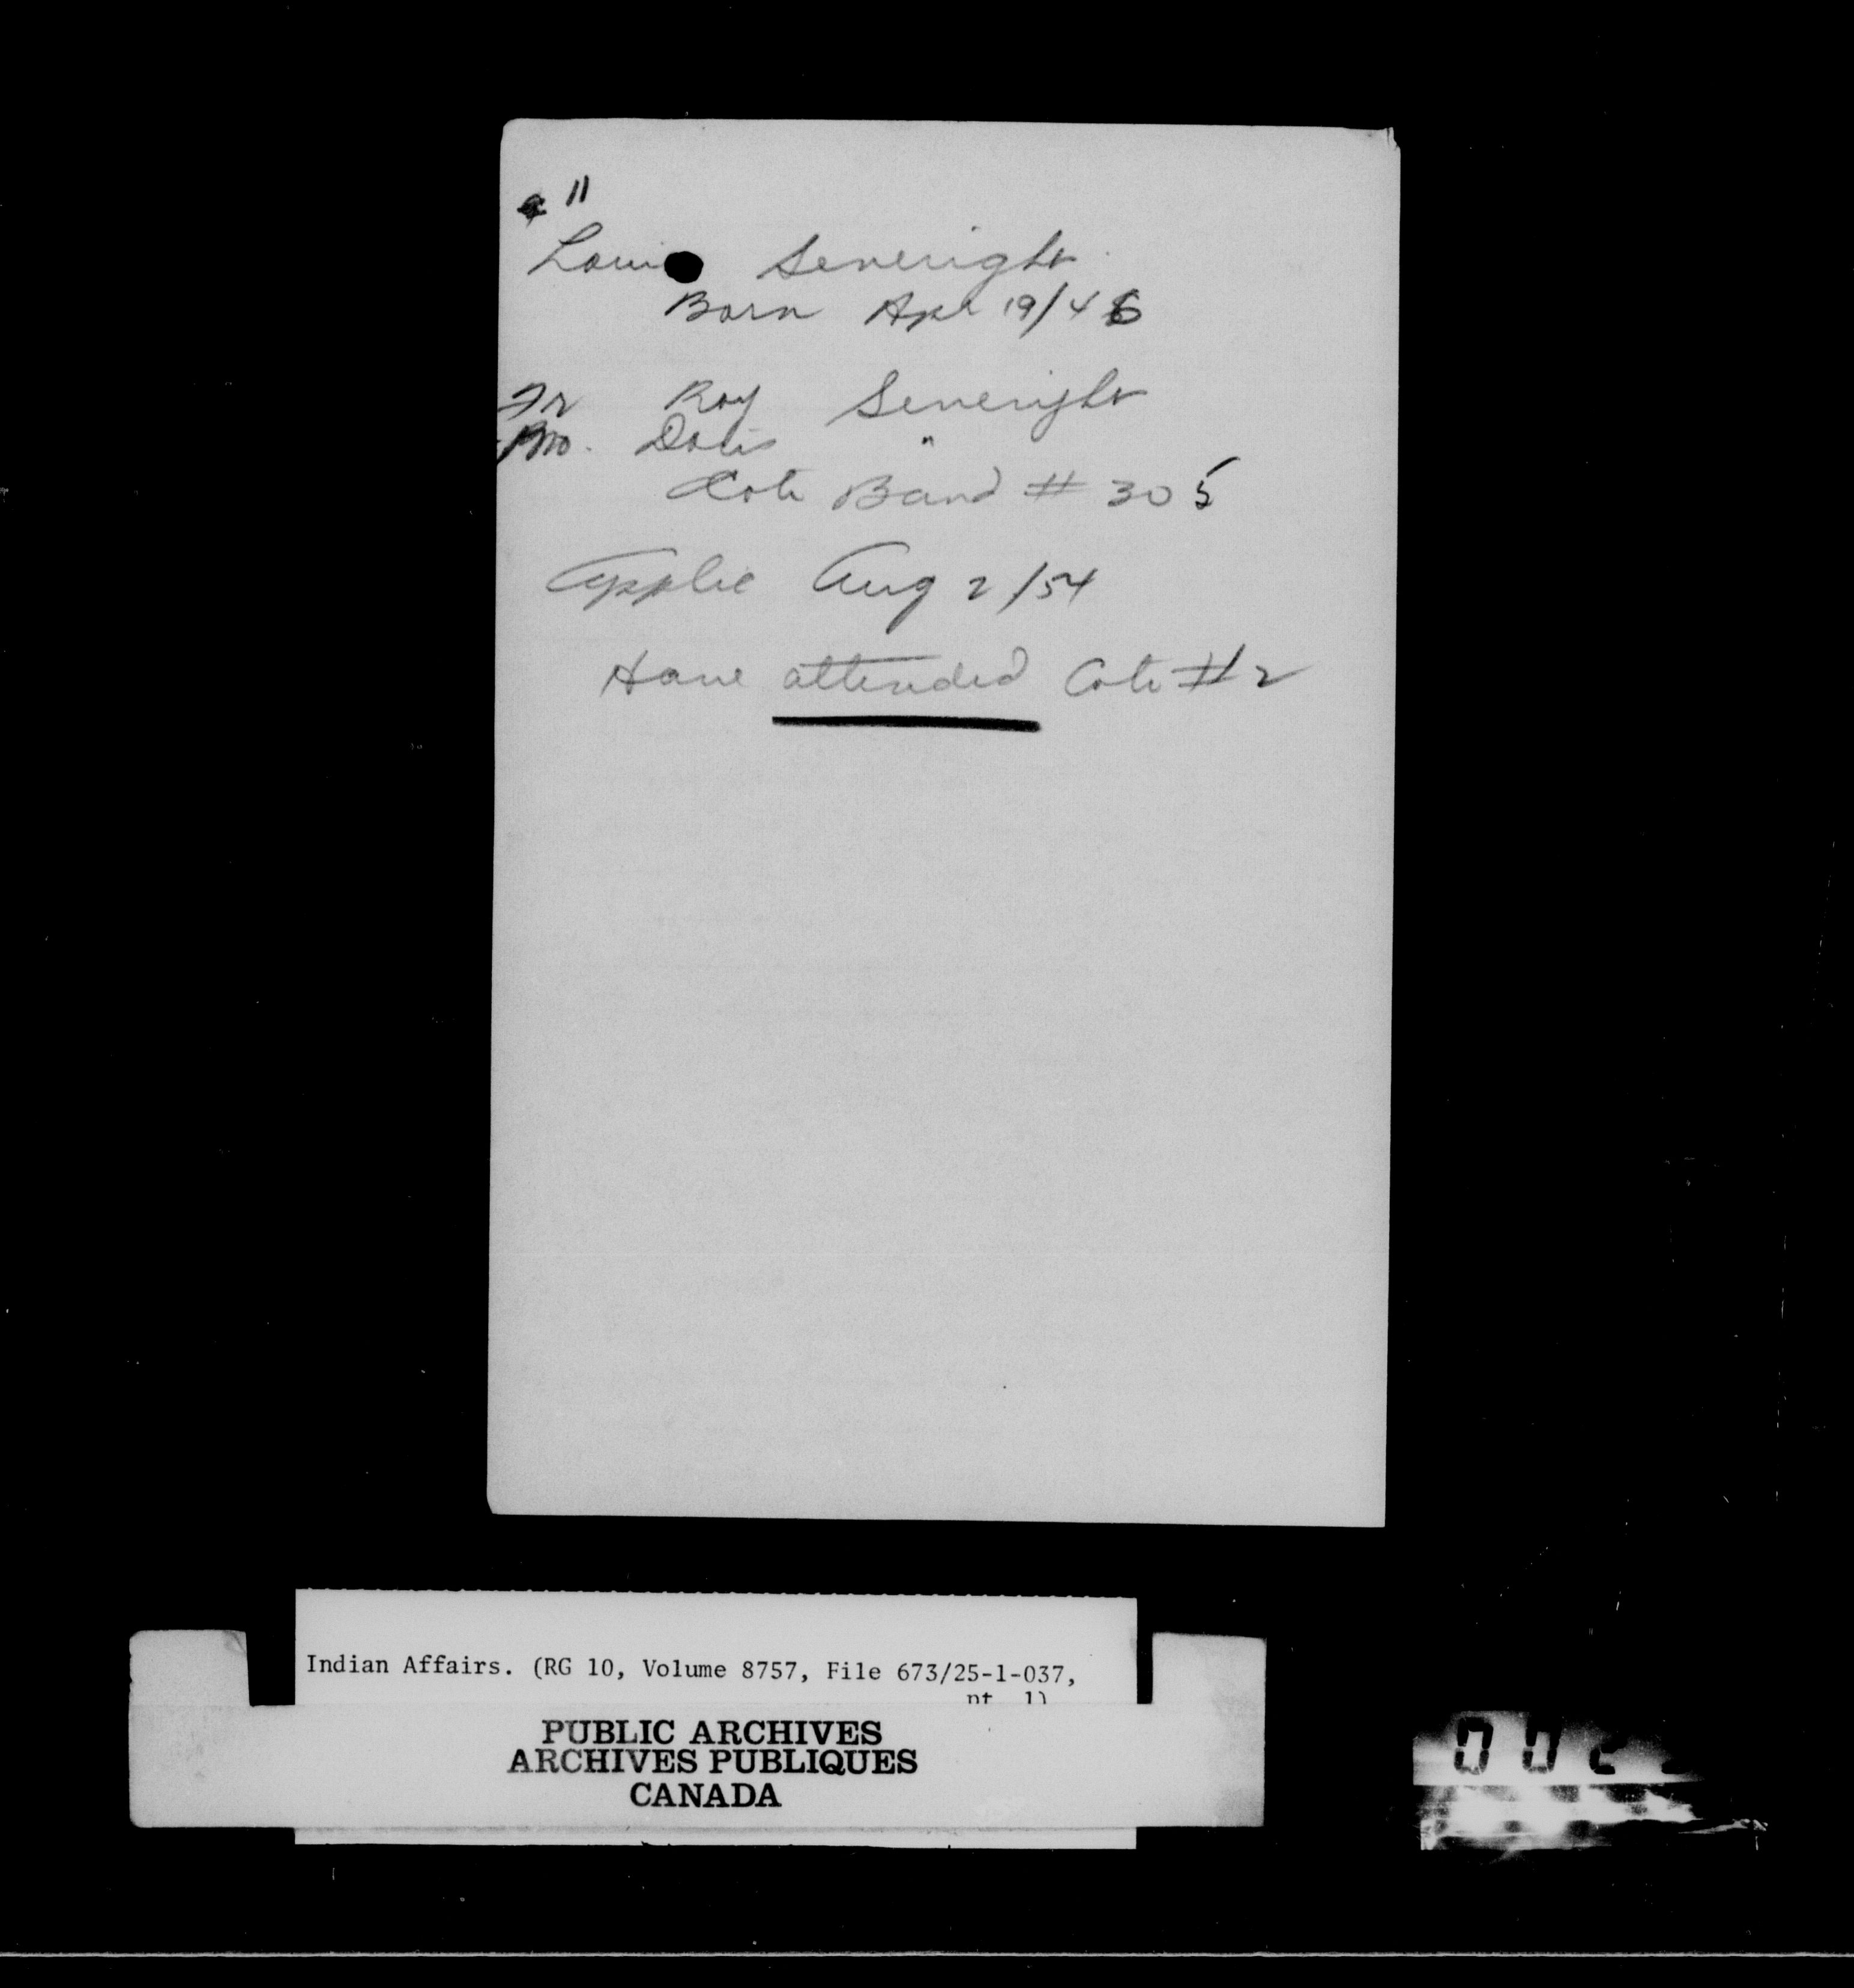 11
Louis Severight
Born Apl 19/46
Fr Roy Severight
Mo. Doris "
Cote Band # 305
Applic Aug 2/54
Have attended Cote #2
Indian Affairs. (RG 10, Volume 8757, File 673/25-1-037,
pt. 1)
PUBLIC ARCHIVES
ARCHIVES PUBLIQUES
CANADA